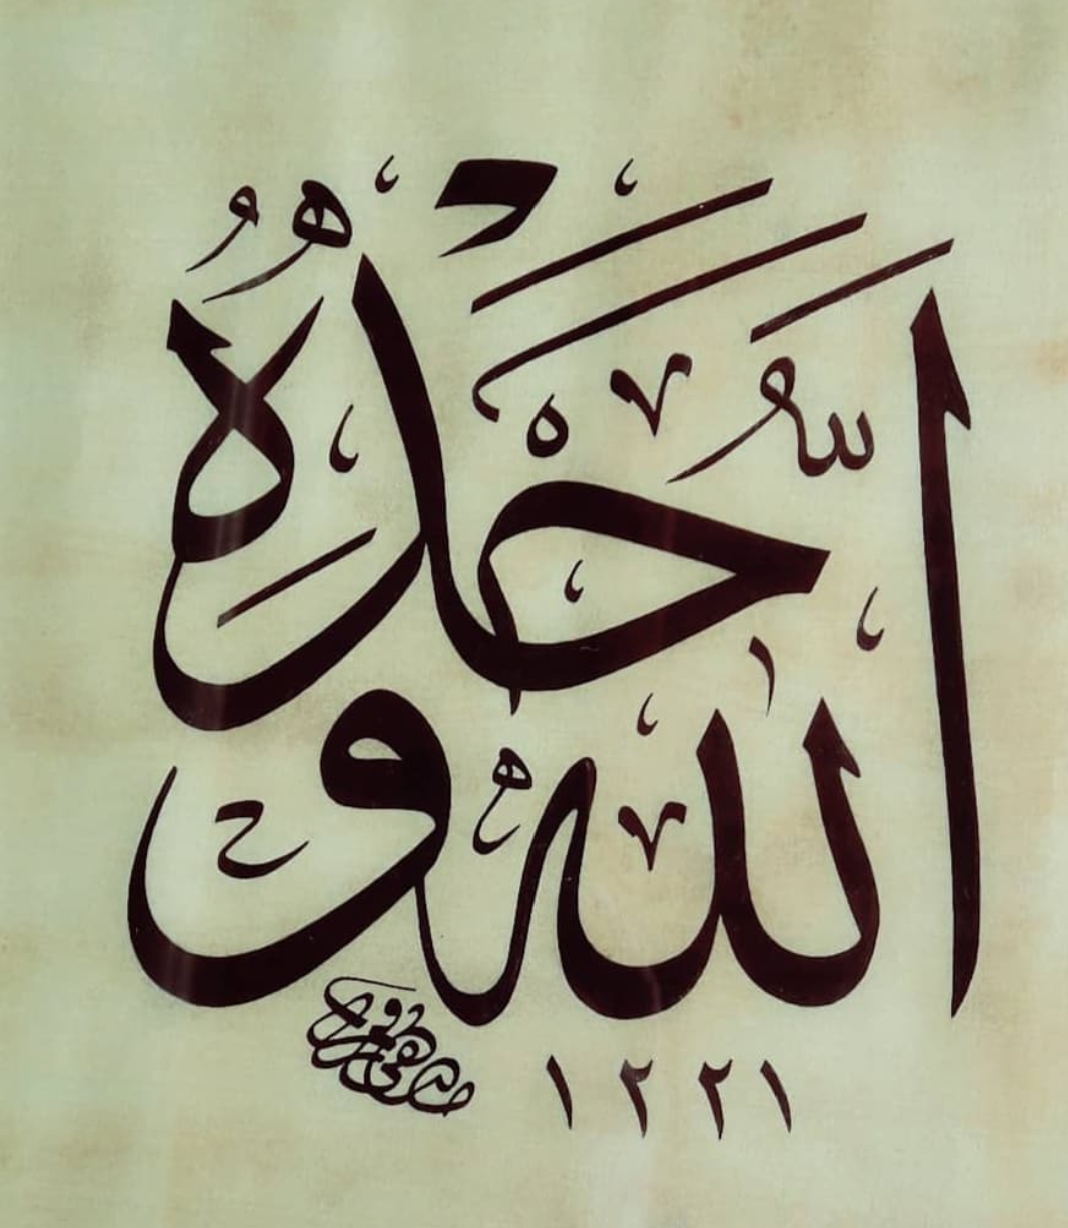 اللهُ وَحْدَهُ
١٢٢١